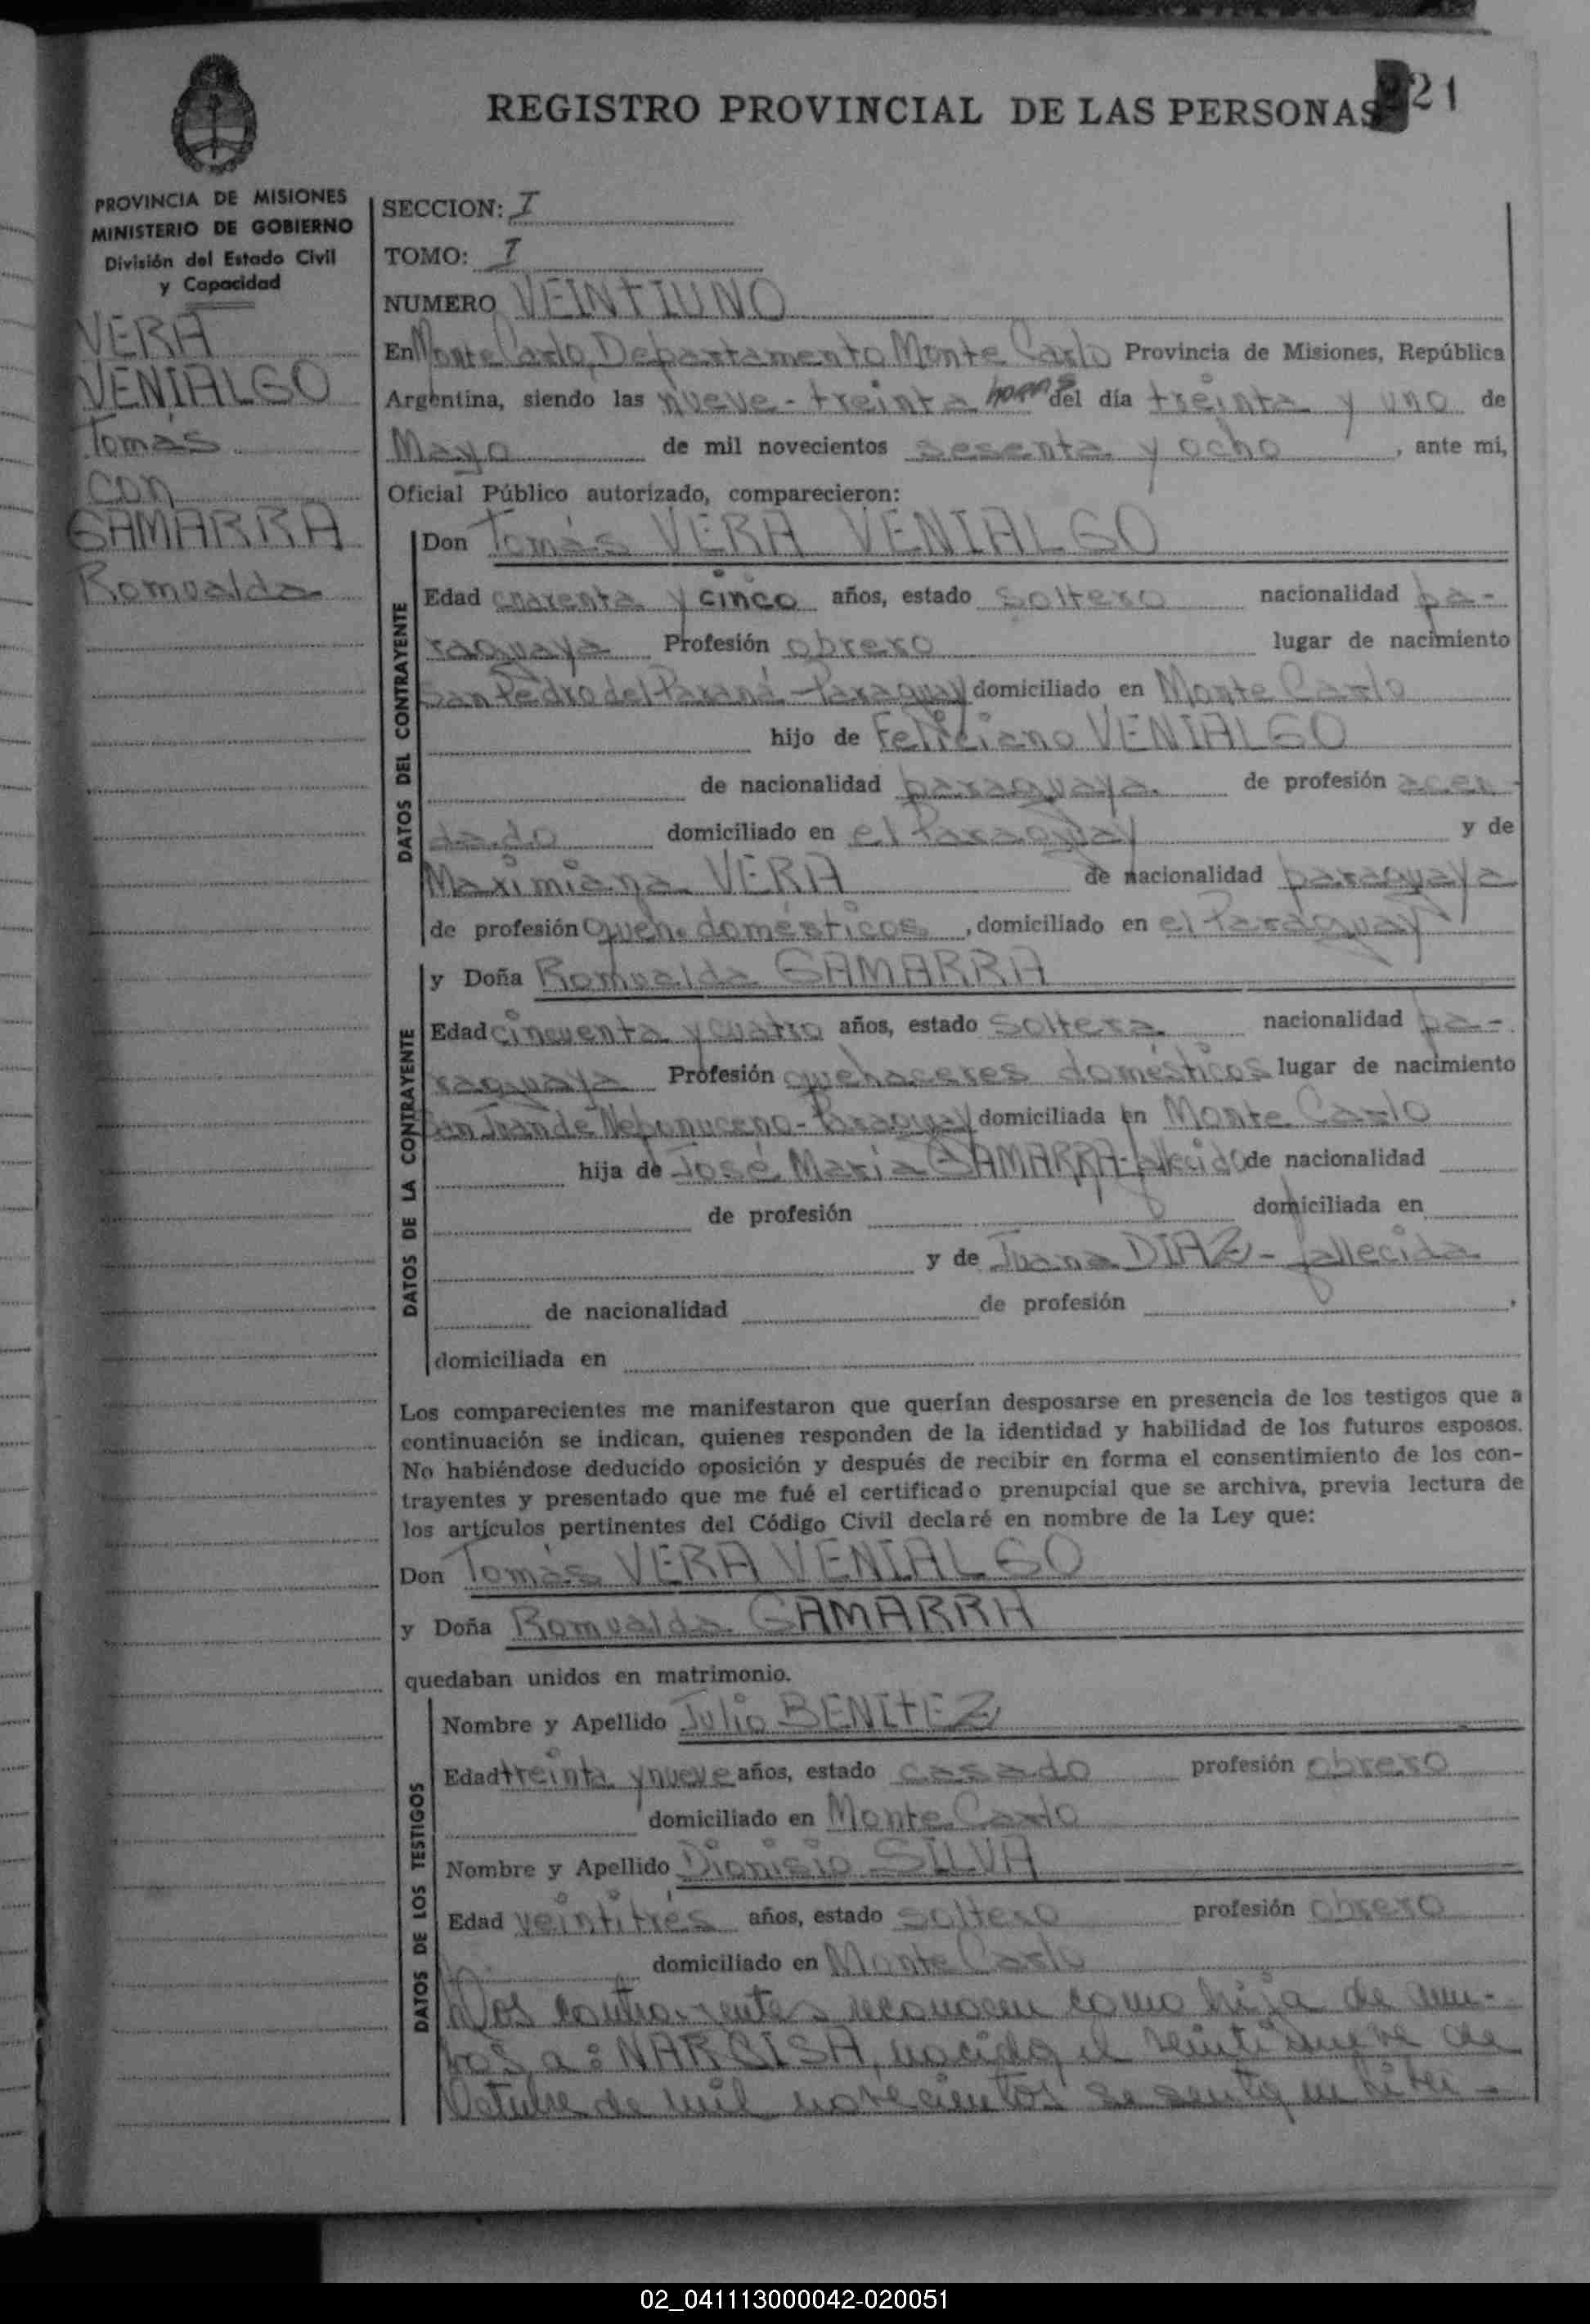 REGISTRO PROVINCIAL DE LAS PERSONAS 21
PROVINCIA DE MISIONES
MINISTERIO DE GOBIERNO
División del Estado Civil
y Capacidad
VERA
VENIALGO
Tomás
con
GAMARRA
Romualda
SECCION: I
TOMO: I
NUMERO VEINTIUNO
En Monte Carlo, Departamento Monte Carlo Provincia de Misiones, República
Argentina, siendo las nueve - treinta horas del día treinta y uno de
Mayo de mil novecientos sesenta y ocho, ante mi,
Oficial Público autorizado, comparecieron:
DATOS DEL CONTRAYENTE
Don Tomás VERA VENIALGO
Edad cuarenta y cinco años, estado soltero nacionalidad pa-
raguaya Profesión obrero lugar de nacimiento
San Pedro del Paraná - Paraguay domiciliado en Monte Carlo
hijo de Feliciano VENIALGO
de nacionalidad paraguaya de profesión acen
dado domiciliado en el Paraguay y de
Maximiana VERA de nacionalidad paraguaya
de profesión Queh. domésticos, domiciliado en el Paraguay
DATOS DE LA CONTRAYENTE
y Doña Romualda GAMARRA
Edad cincuenta y cuatro años, estado soltera nacionalidad pa-
raguaya Profesión quehaceres domésticos lugar de nacimiento
San Juan de Nepomuceno - Paraguay domiciliada en Monte Carlo
hija de José Maria GAMARRA - fallecido de nacionalidad
de profesión domiciliada en
y de Juana DIAZ - fallecida
de nacionalidad de profesión .
domiciliada en
Los comparecientes me manifestaron que querían desposarse en presencia de los testigos que a
continuación se indican, quienes responden de la identidad y habilidad de los futuros esposos.
No habiéndose deducido oposición y después de recibir en forma el consentimiento de los con-
trayentes y presentado que me fué el certificado prenupcial que se archiva, previa lectura de
los artículos pertinentes del Código Civil declaré en nombre de la Ley que:
Don Tomás VERA VENIALGO
y Doña Romualda GAMARRA
quedaban unidos en matrimonio.
DATOS DE LOS TESTIGOS
Nombre y Apellido Julio BENITEZ
Edad treinta y nueve años, estado casado profesión obrero
domiciliado en Monte Carlo
Nombre y Apellido Dionisio SILVA
Edad veintitrés años, estado soltero profesión obrero
domiciliado en Monte Carlo
Los contrayentes reconocen como hija de am-
bos a: NARCISA, nacida el veintinueve de
Octubre de mil novecientos sesenta
02_041113000042-020051